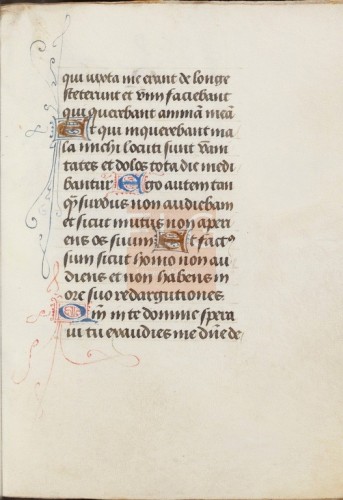 qui iuxta me erant de longe
steterunt et vim faciebant
qui querebant animā meā
Et qui inquerebant ma
la michi locuti sunt vani
tates et dolos tota die medi
bantur Ego autem tan
qȝ surdus non audiebam
et sicut mutus non aperi
ens os suum Et factꝰ
sum sicut homo non au
diens et non habens in
ore suo redargutiones
Qm̄ in te domine spera
ui tu exaudies me dn̄e de